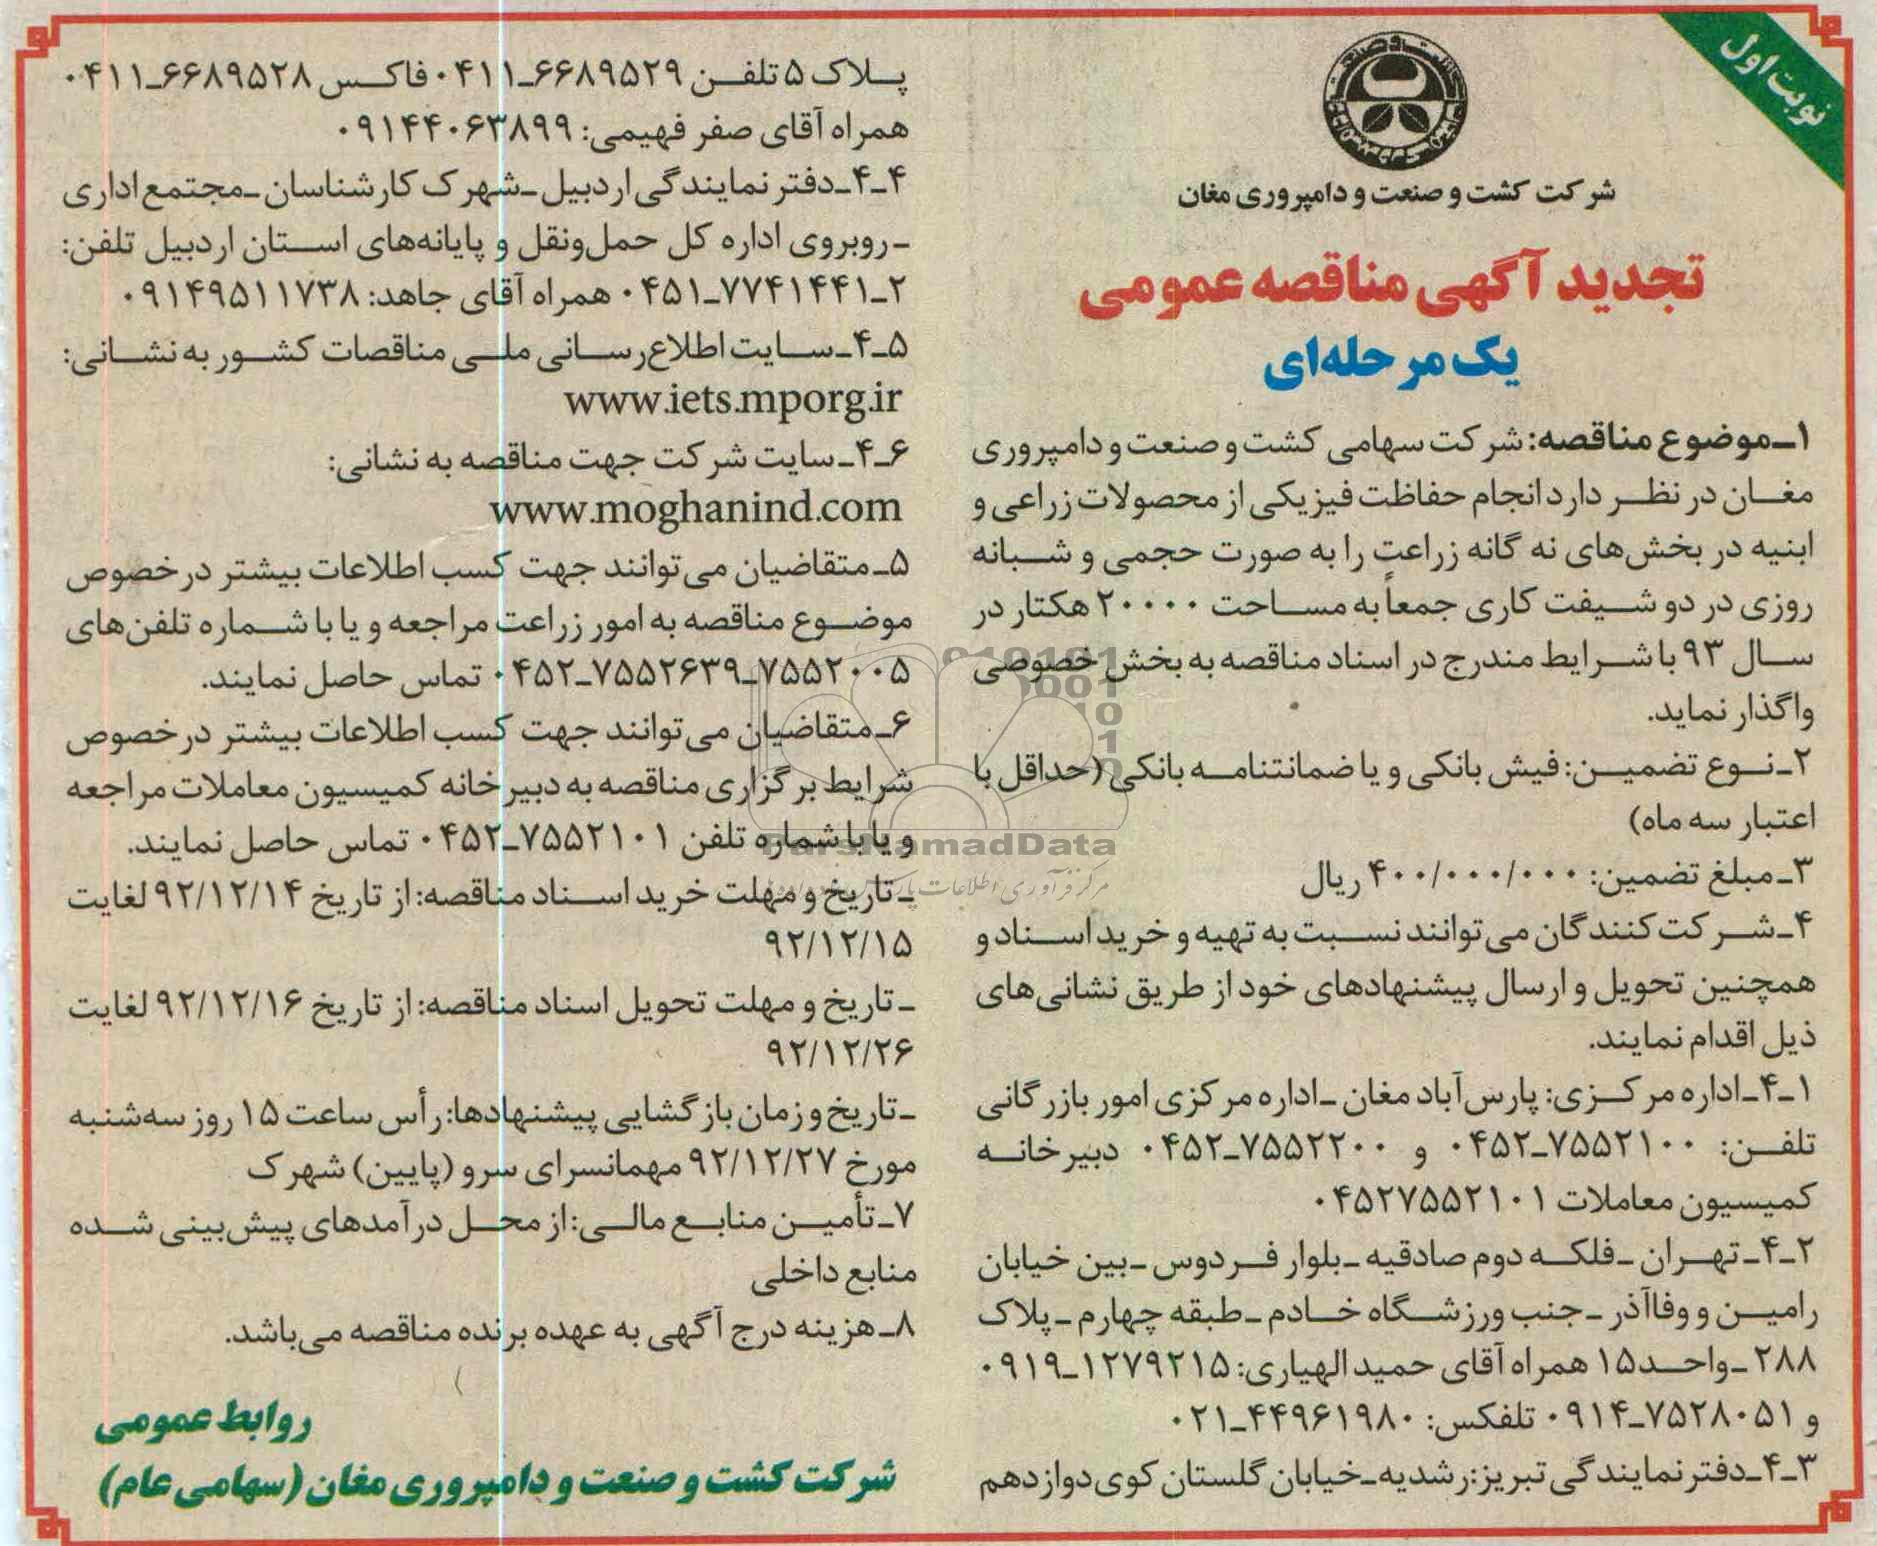 نوبت اول
شرکت کشت و صنعت و دامپروری مغان
تجدید آگهی مناقصه عمومی
یک مرحله‌ای
۱ـ موضوع مناقصه: شرکت سهامی کشت و صنعت و دامپروری
مغـان در نظـر دارد انجام حفاظت فیزیکی از محصولات زراعی و
ابنیه در بخش‌های نه گانه زراعت را به صورت حجمی و شـبانه
روزی در دو شـیفت کاری جمعاً به مسـاحت ۲۰۰۰۰ هکتار در
سـال ۹۳ با شـرایط مندرج در اسناد مناقصه به بخش خصوصی
واگذار نماید.
۲ـ نـوع تضمیـن: فیش بانکی و یا ضمانتنامـه بانکی (حداقل با
اعتبار سه ماه)
۳ـ مبلغ تضمین: ۴۰۰/۰۰۰/۰۰۰ ریال
۴ـ شـرکت کنندگان می‌توانند نسـبت به تهیه و خرید اسـناد و
همچنین تحویل و ارسال پیشنهادهای خود از طریق نشانی‌های
ذیل اقدام نمایند.
۴ـ۱ـ اداره مرکـزی: پارس‌آباد مغان ـ اداره مرکزی امور بازرگانی
تلفـن: ۷۵۵۲۱۰۰ـ۰۴۵۲ و ۷۵۵۲۲۰۰ـ۰۴۵۲ دبیرخانـه
کمیسیون معاملات ۰۴۵۲۷۵۵۲۱۰۱
۴ـ۲ـ تهـران ـ فلکـه دوم صادقیه ـ بلوار فـردوس ـ بین خیابان
رامیـن و وفاآذر ـ جنب ورزشـگاه خـادم ـ طبقه چهارم ـ پلاک
۲۸۸ ـ واحـد ۱۵ همراه آقای حمید الهیاری: ۱۲۷۹۲۱۵ـ۰۹۱۹
و ۷۵۲۸۰۵۱ـ۰۹۱۴ تلفکس: ۴۴۹۶۱۹۸۰ـ۰۲۱
۴ـ۳ـ دفتر نمایندگی تبریز: رشدیه ـ خیابان گلستان کوی دوازدهم
پـلاک ۵ تلفـن ۶۶۸۹۵۲۹ـ۰۴۱۱ فاکـس ۶۶۸۹۵۲۸ـ۰۴۱۱
همراه آقای صفر فهیمی: ۰۹۱۴۴۰۶۳۸۹۹
۴ـ۴ـ دفتر نمایندگی اردبیل ـ شهرک کارشناسان ـ مجتمع اداری
ـ روبروی اداره کل حمل‌ونقل و پایانه‌های اسـتان اردبیل تلفن:
۲ـ۷۷۴۱۴۴۱ـ۰۴۵۱ همراه آقای جاهد: ۰۹۱۴۹۵۱۱۷۳۸
۴ـ۵ـ سـایت اطلاع‌رسـانی ملـی مناقصات کشـور به نشـانی:
www.iets.mporg.ir
۴ـ۶ـ سایت شرکت جهت مناقصه به نشانی:
www.moghanind.com
۵ـ متقاضیان می‌توانند جهت کسب اطلاعات بیشتر در خصوص
موضـوع مناقصه به امور زراعت مراجعه و یا با شـماره تلفن‌های
۷۵۵۲۰۰۵ـ۷۵۵۲۶۳۹ـ۰۴۵۲ تماس حاصل نمایند.
۶ـ متقاضیان می‌توانند جهت کسب اطلاعات بیشتر در خصوص
شرایط برگزاری مناقصه به دبیرخانه کمیسیون معاملات مراجعه
و یا با شماره تلفن ۷۵۵۲۱۰۱ـ۰۴۵۲ تماس حاصل نمایند.
ـ تاریخ و مهلت خرید اسـناد مناقصه: از تاریخ ۹۲/۱۲/۱۴ لغایت
۹۲/۱۲/۱۵
ـ تاریخ و مهلت تحویل اسناد مناقصه: از تاریخ ۹۲/۱۲/۱۶ لغایت
۹۲/۱۲/۲۶
ـ تاریخ و زمان بازگشایی پیشنهادها: رأس ساعت ۱۵ روز سه‌شنبه
مورخ ۹۲/۱۲/۲۷ مهمانسرای سرو (پایین) شهرک
۷ـ تأمیـن منابـع مالـی: از محـل درآمدهای پیش‌بینی شـده
منابع داخلی
۸ـ هزینه درج آگهی به عهده برنده مناقصه می‌باشد.
روابط عمومی
شرکت کشت و صنعت و دامپروری مغان (سهامی عام)
ParsNamadData